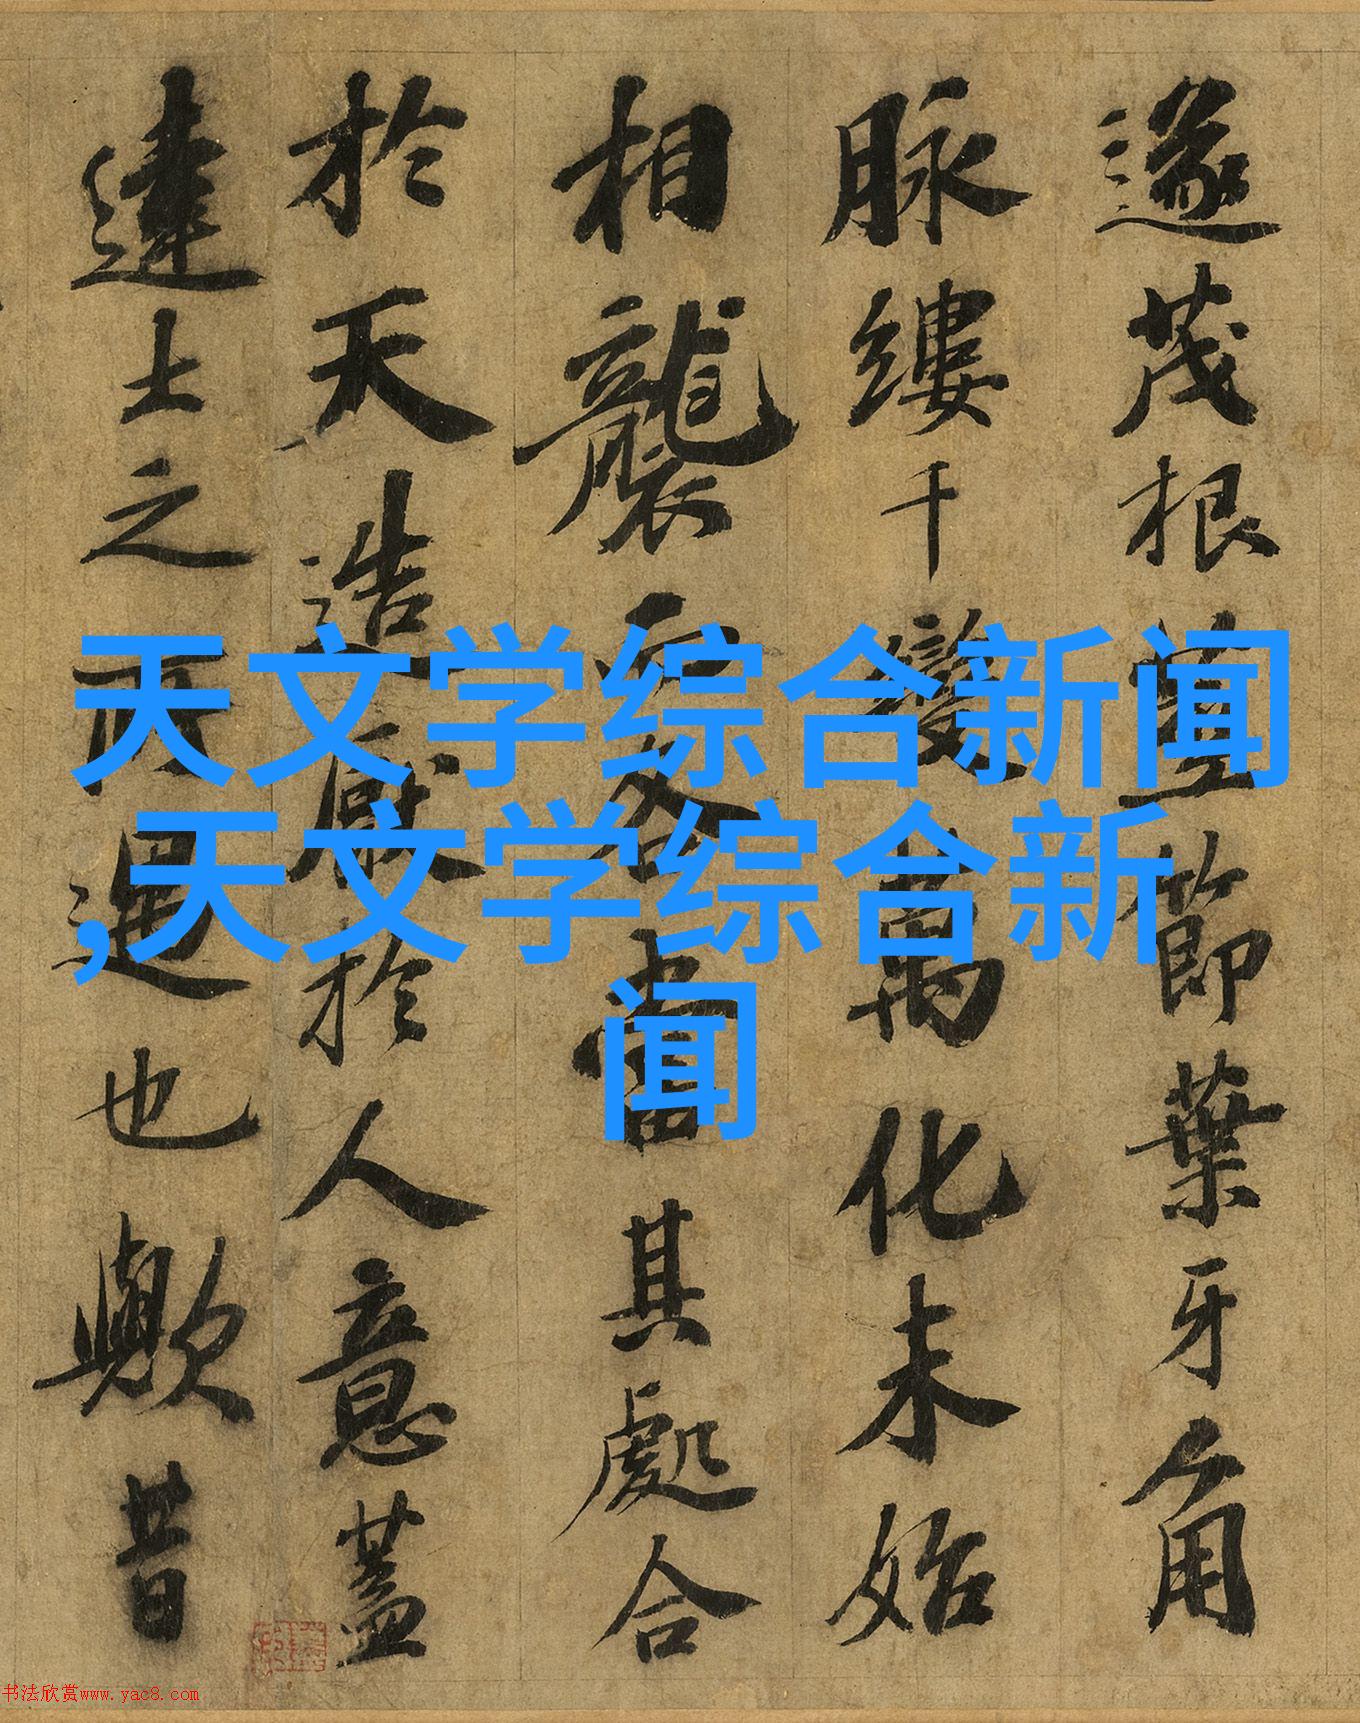 天文学综合新闻
,天文学综合新
闻
遂茂根莖節葉牙角
脉縷千變萬化未始
相襲而各當其處合
於天造厭於人意蓋
達士之所也歟昔
书法欣赏www.yac8.com